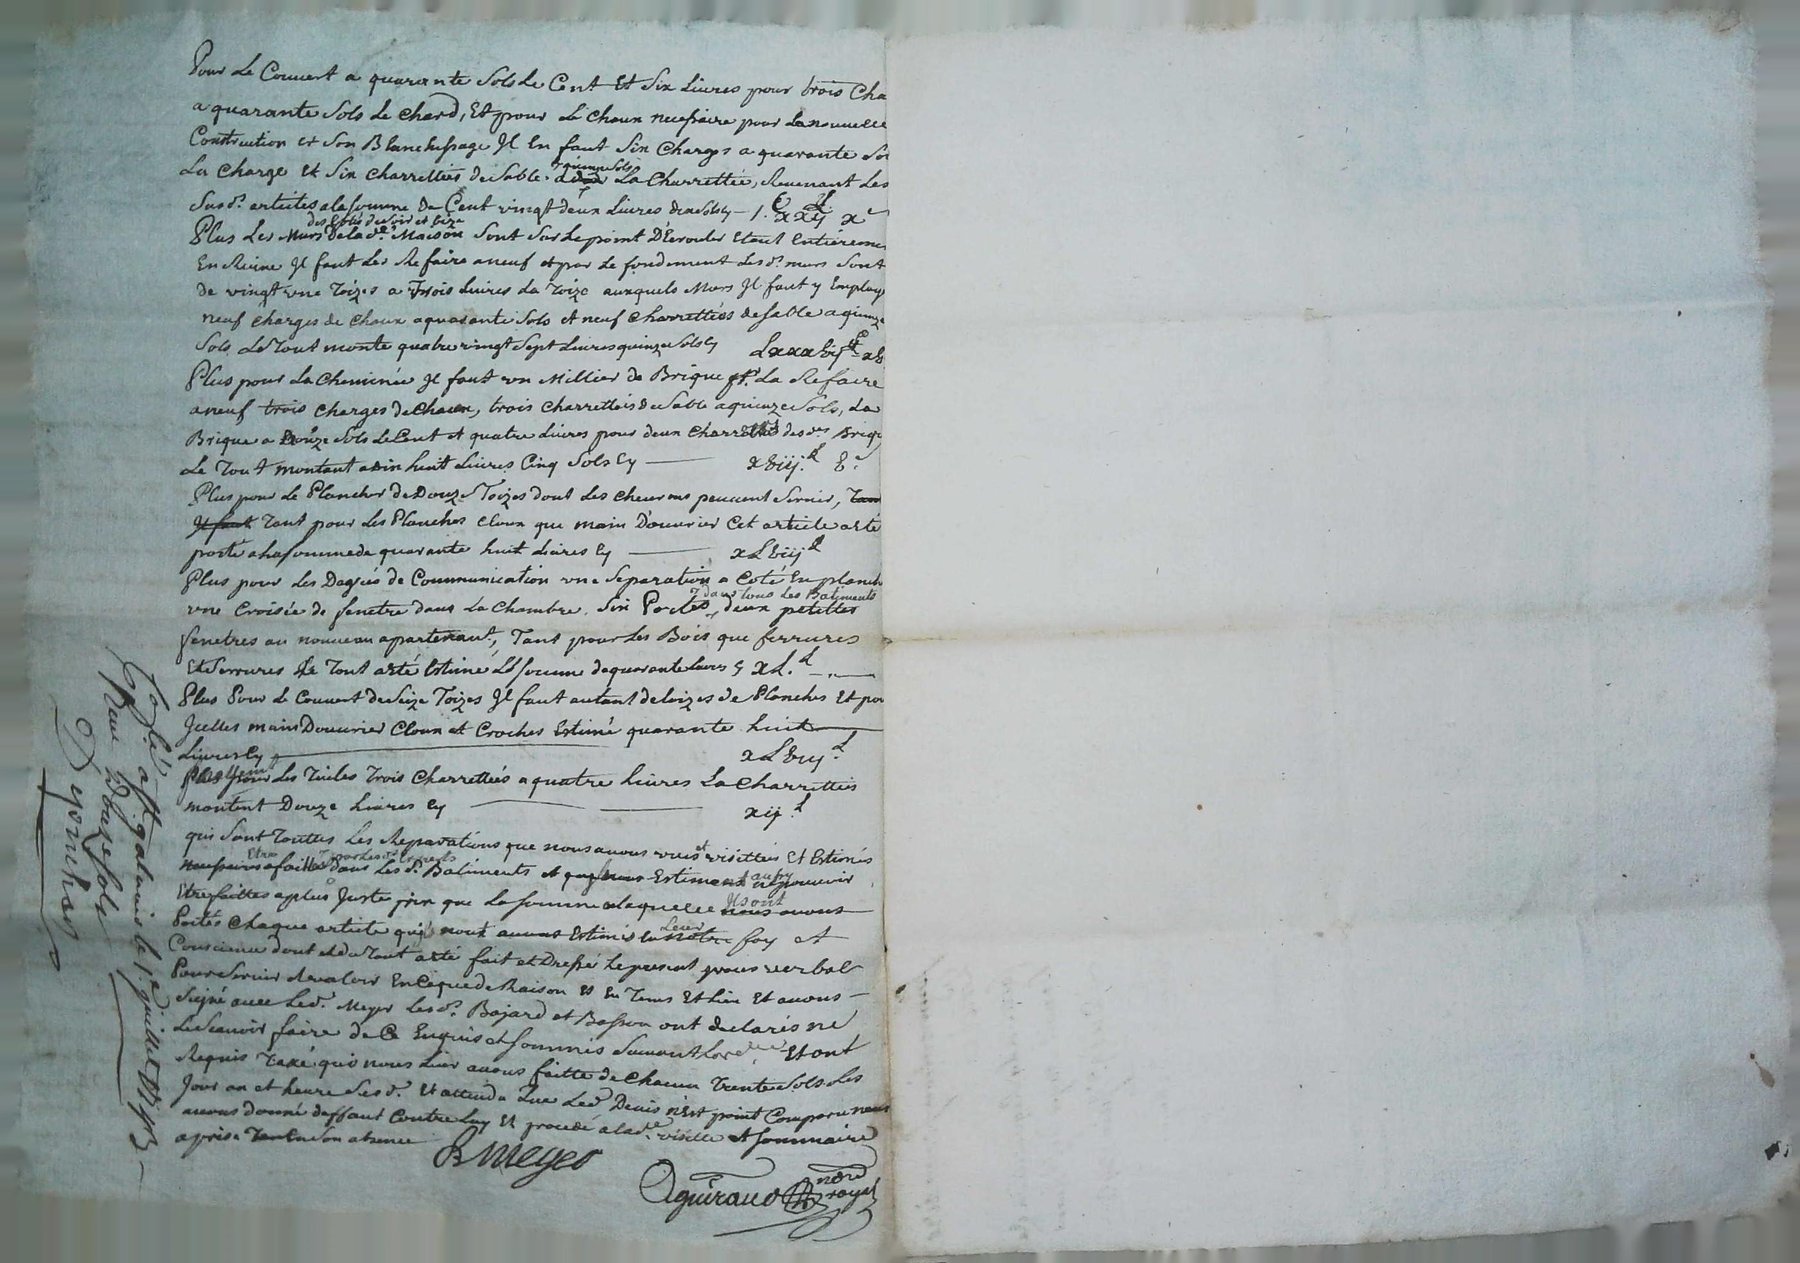 Pour Le Couuert a quarante Sols Le Cent Et Six Liures pour trois Cha
a quarante Sols Le Chard, Et pour Le Chaux necessaire pour La nouuelle
Construction et Son Blanchissage Il En faut Six Charges a quarante So
La Charge Et Six Charrettées de Sable a quinze Sols La Charrettée, Reuenant Les
Susd.s artictes a la somme De Cent vingt deux Liures dix Sols Cy — j.C xxij L x s
Plus Les Murs des Cotés de Soir et bize de la d.e Maison Sont Sur Le point D'Ecrouler Etant Entierem
En Ruine Il faut Les Refaire a neuf et par Le fondement Les d.s murs Sont
de vingt une Toizes a Trois Liures La Toize auxquels Murs Il faut y Employ
neuf Charges de Chaux a quarante Sols et neuf Charrettées de Sable a quinze
Sols, Le Tout monte quatre vingt Sept Liures quinze Sols Cy Lxxxvij L xv
Plus pour La Cheminée Il faut un Millier de Brique p.r La Refaire
a neuf trois Charges de Chaux, trois Charrettées de Sable a quinze Sols, La
Brique a Sols Le Cent et quatre Liures pour deux Charrettées des d.es Briq
Le Tout montant a dix huit Liures Cinq Sols Cy — xviij L v s
Plus pour Le Plancher de Douze Toizes dont Les Cheurons peuuent Seruir, Tan
Il faut Tant pour Les Planches Cloux que main D'ouurier Cet article a été
porté a La somme de quarante huit Liures Cy — xLviij L
Plus pour Les Degrés de Communication une Separation a Coté En planch
une Croisée de fenetre dans La Chambre. Six Portes dans tous Les Batiments, deux petittes
fenetres au nouueau apartenant, Tant pour Les Bois que ferrures
Et Serrures Le Tout a été Estimé La somme de quarante Liures Cy xL. L
Plus Pour Le Couuert de Seize Toizes Il faut autant de toizes de Planches Et pou
Icelles main D'ouurier Cloux et Croches Estimé quarante huit
Liures Cy xLviij L
Plus pour Les Tuiles Trois Charrettées a quatre Liures La Charrettées
montent Douze Liures Cy — xij L
qui Sont Touttes Les Reparations que nous auons vues et visittées Et Estimés
necessaires Etre faittes dans Les d.s Batiments et Estiment auſsy ne pouuoir
Etre faittes a plus Juste prix que La somme a laquelle nous Ils ont auons
Portés Chaque article nous auons Estimés En notre Leur foy et
Conscience dont et du Tout a été fait et Dressé Le present procés verbal
Pour Seruir et valoir En Ce que de Raison Et En Tems Et Lieu Et auons
Signé auec Led. Meyer Les d.s Bajard et Basson ont declarés ne
Le Scauoir faire de Ce Enquis et sommés Suiuant Lord.ce Et ont
Requis Taxe qui nous Leur auons faitte de Chacun Trente Sols Les
Jour an et heure Sus d. Et attendu Que Led. Denis n'Est point Comparu nous
auons donné deffaut Contre Luy Et procedé a la d.e visitte et Sommaire
aprise Tant En Son absence
B Meyer
Aguiraud
nore royal
Con.lé a st galmier le juillet
Reçu Douze sols